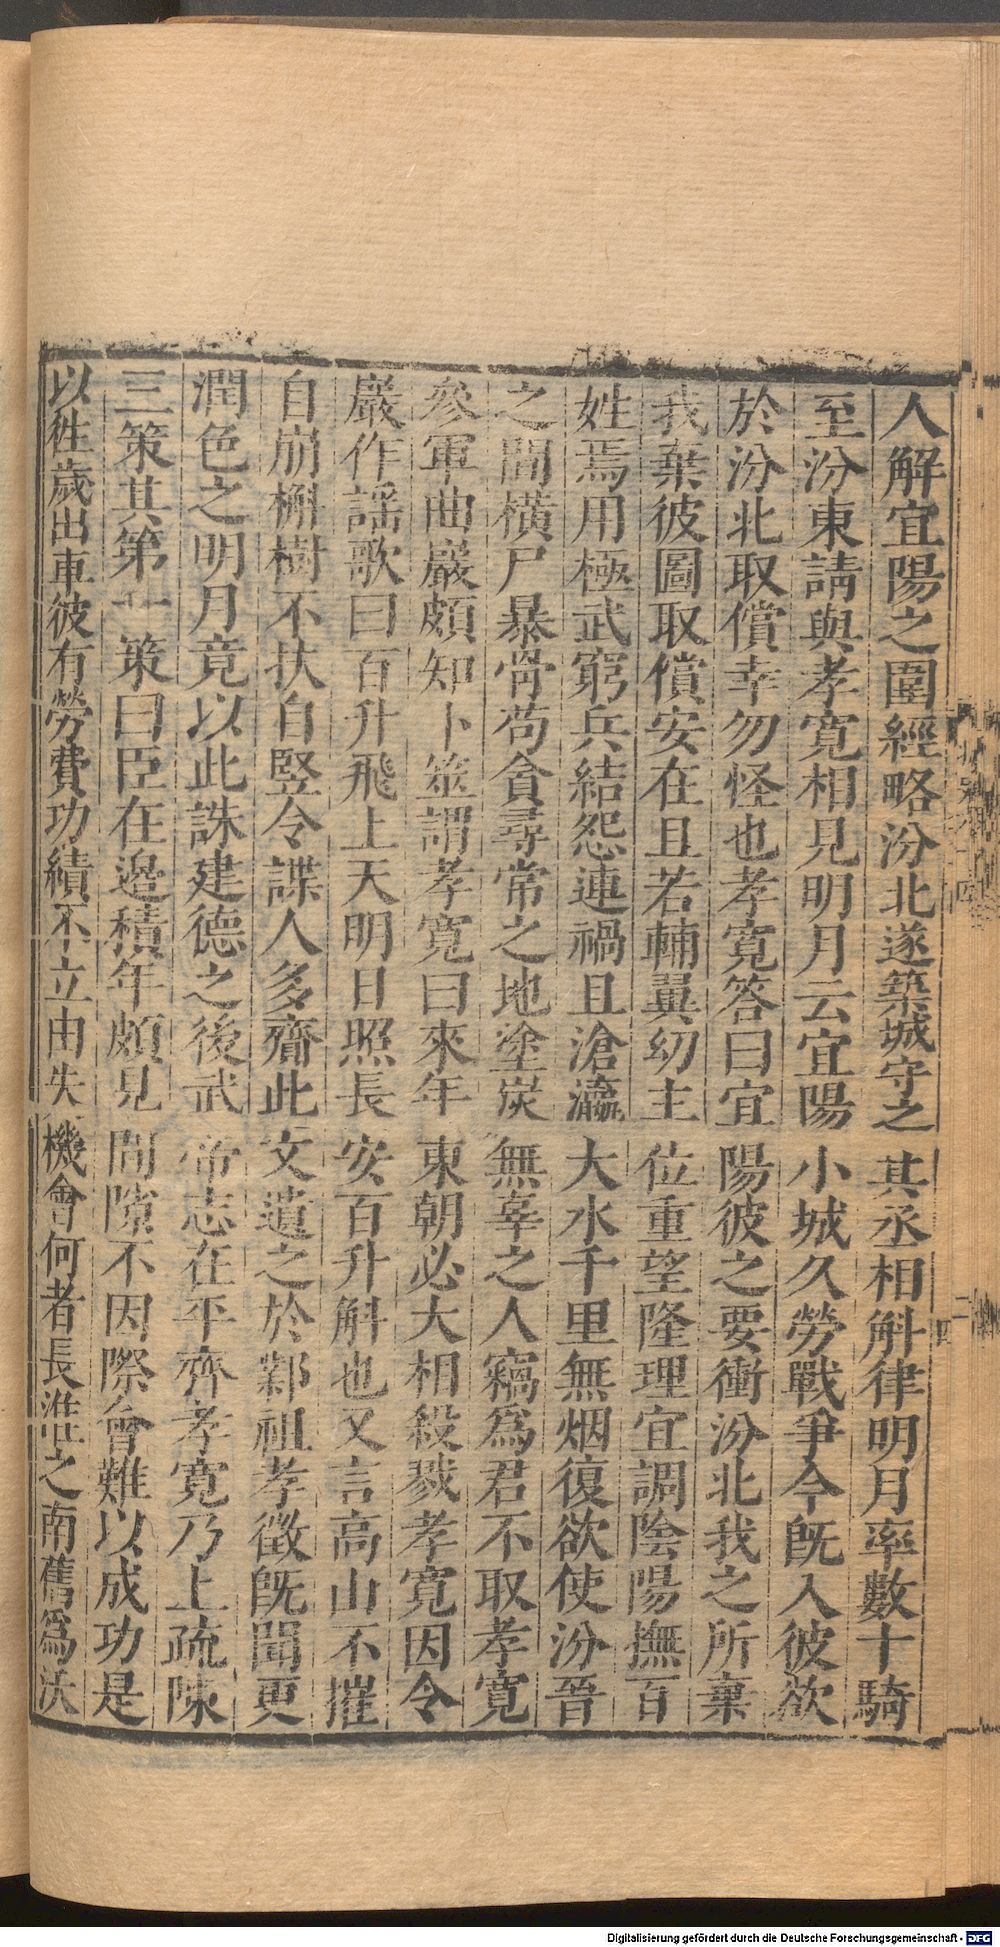 人解宜陽之圍經略汾北遂築城守之其丞相斛律明月率數十騎
至汾東請與孝寬相見明月云宜陽小城久勞戰爭今旣入彼欲
於汾北取償幸勿怪也孝寬答曰宜陽彼之要衝汾北我之所棄
我棄彼圖取償安在且若輔翼幼主位重望隆理宜調陰陽撫百
姓焉用極武窮兵結怨連禍且滄瀛大水千里無烟復欲使汾晉
之間橫尸暴骨苟貪尋常之地塗炭無辜之人竊爲君不取孝寬
參軍曲巖頗知卜筮謂孝寬曰來年東朝必大相殺戮孝寬因令
巖作謡歌曰百升飛上天明日照長安百升斛也又言高山不摧
自崩槲樹不扶自竪令諜人多齎此文遺之於鄴祖孝徵旣聞更
潤色之明月竟以此誅建德之後武帝志在平齊孝寬乃上疏陳
三策其第一策曰臣在邊積年頗見間隙不因際會難以成功是
以徃歲出車彼有勞費功績不立由失機會何者長淮之南舊爲沃
Digitalisierung gefördert durch die Deutsche Forschungsgemeinschaft - DFG